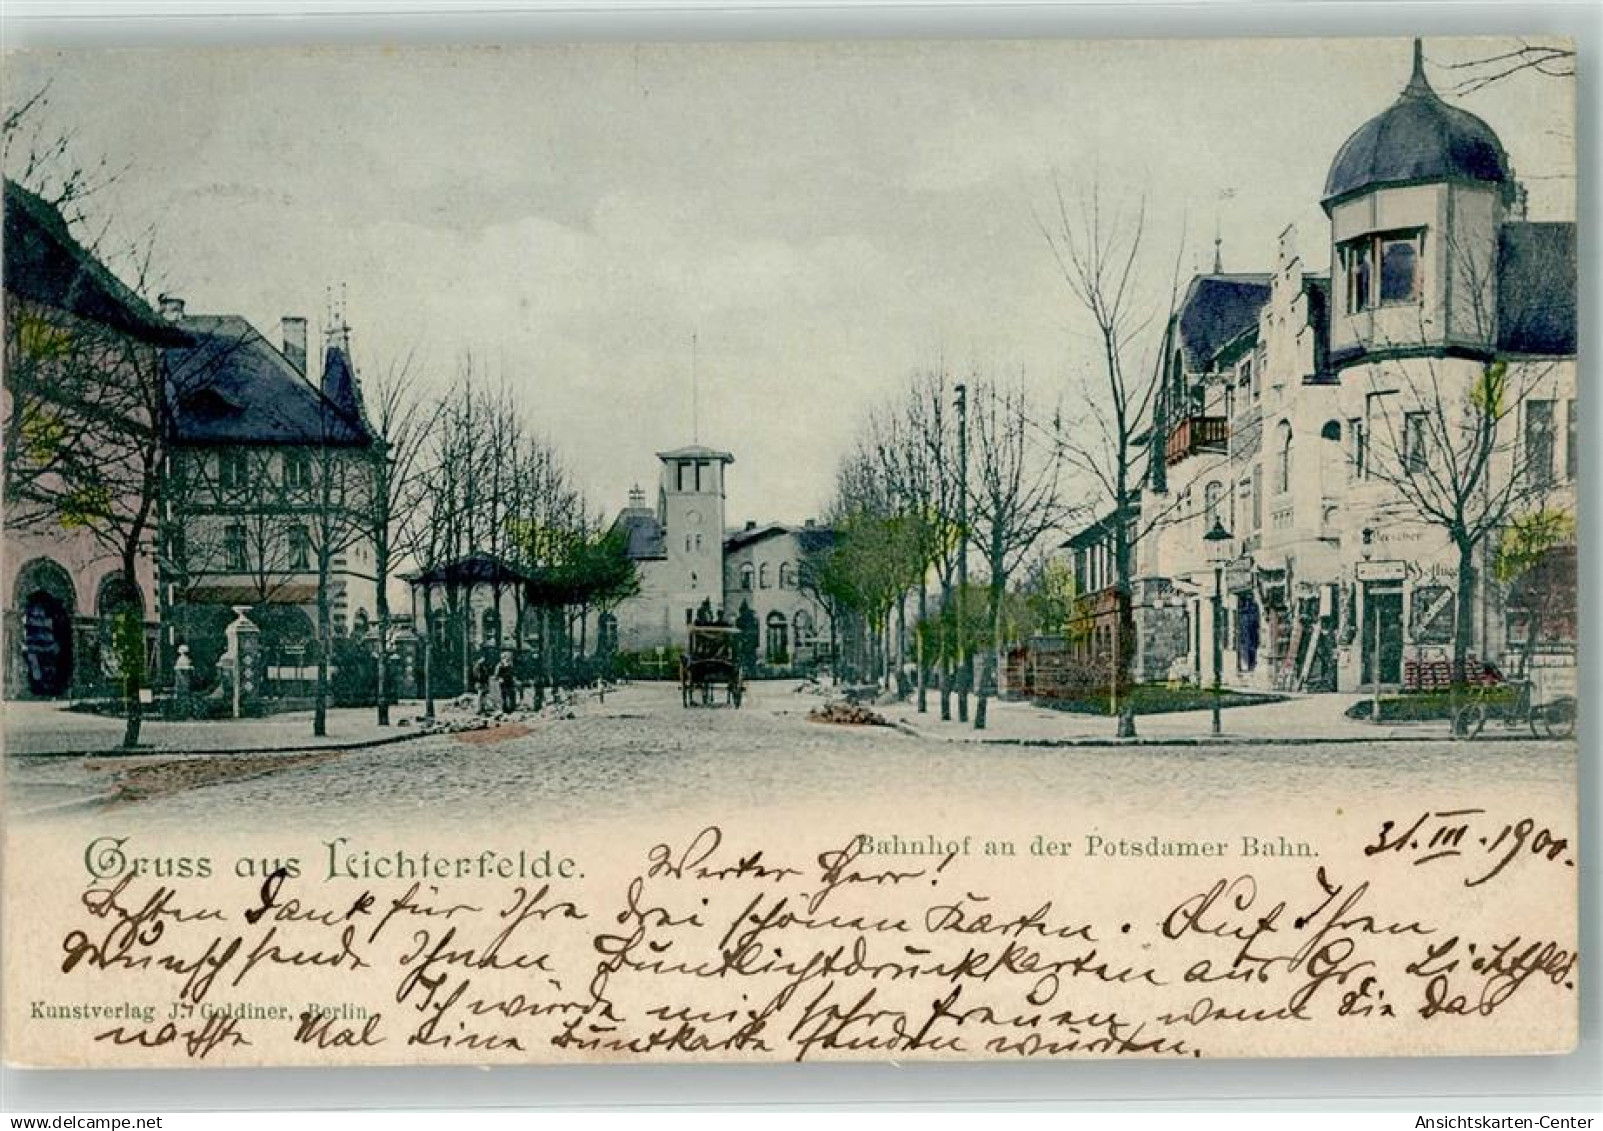 Fleischer
Gruss aus Lichterfelde.
Bahnhof an der Potsdamer Bahn.
31. III. 1900.
Werter Herr!
Besten Dank für Ihre drei schönen Karten. Auf Ihren
Wunsch sende Ihnen Buntlichtdruckkarten aus Gr. Lichtfeld.
Kunstverlag J. Goldiner, Berlin.
Ich würde mich sehr freuen, wenn Sie das
nächste Mal eine Buntkarte senden würden.
Ansichtskarten-Center